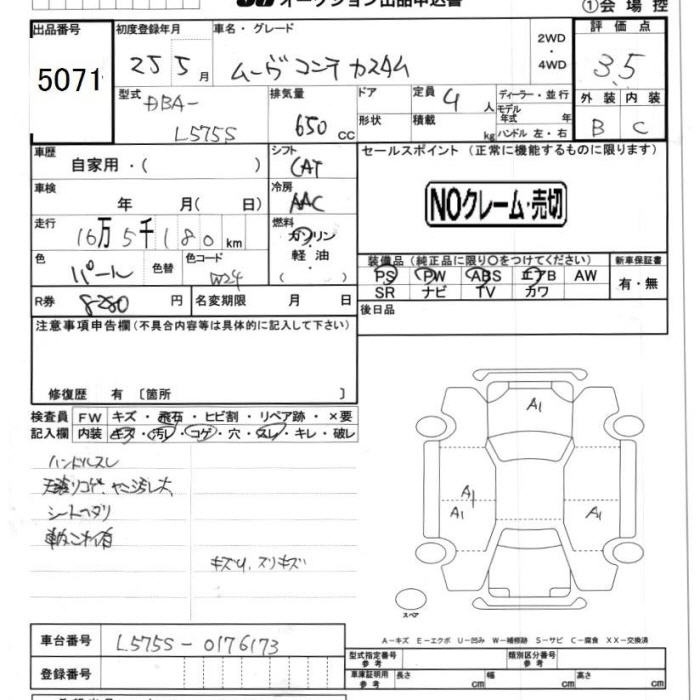 オークション出品申込書
①会場控
出品番号
5071
初度登録年月
25 5月
車名・グレード
ムーヴ コンテ カスタム
2WD
・
4WD
評価点
3.5
型式
DBA-
L575S
排気量
650 cc
ドア
形状
定員 4 人
積載 kg
ディーラー・並行
モデル年式 年
ハンドル 左・右
外装 内装
B C
車歴
自家用・( )
シフト
CAT
セールスポイント (正常に機能するものに限ります)
車検
年 月( 日)
冷房
AAC
NOクレーム・売切
走行
16万5千180km
燃料
ガソリン
軽油
( )
色
パール
色替
色コード
W24
装備品 (純正品に限り○をつけてください)
PS PW ABS エアB AW
SR ナビ TV カワ
新車保証書
有・無
R券 8280 円
名変期限 月 日
後日品
注意事項申告欄 (不具合内容等は具体的に記入して下さい)
修復歴 有 〔箇所 〕
検査員
記入欄
FW キズ・飛石・ヒビ割・リペア跡・×要
内装 キズ・汚レ・コゲ・穴・スレ・キレ・破レ
ハンドルスレ
天張りコゲ、ヤニ汚レ大
シートヘタリ
キズU、スリキズ
A1
A1
A1
A1
スペア
A-キズ E-エクボ U-凹み W-補修跡 S-サビ C-腐食 XX-交換済
車台番号
L575S-0176173
登録番号
型式指定番号
参考
類別区分番号
参考
車庫証明用
参考
長さ cm
幅 cm
高さ cm